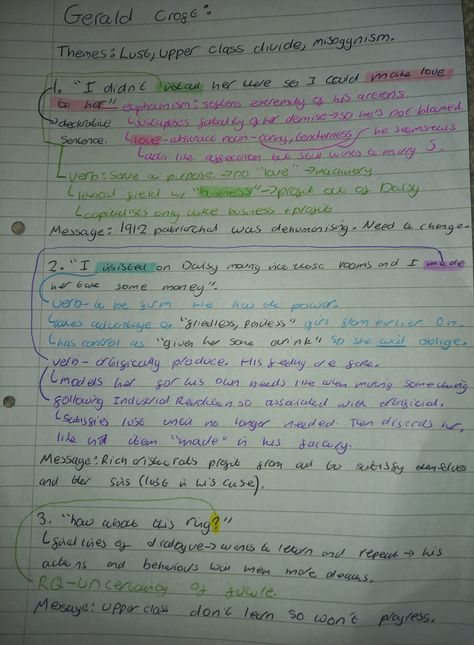 Gerald Croft:
Themes: Lust, upper class divide, misogynism.
1. "I didn't install her there so I could make love
to her" euphamism: softens extremity of his actions.
→declarative ↳juxtaposes fatality of her demise→so he's not blamed
sentence. ↳love-abstract noun-caring, tenderness he seems this
↳acts like affection but still wants to marry S.
↳verb: serve a purpose.→no "love"→machinery.
↳lexical field w/ "business"→profit out of Daisy
↳capitalises only value business + profit
Message: 1912 patriarchal was dehumanising. Need to change.
2. "I insisted on Daisy moving into those rooms and I made
her take some money".
verb- to be firm. He has the power.
↳takes advantage of "friendless, penniless" girl from earlier on.
↳has control as "given her some drink" so she will oblige.
verb- artificially produce. His feelings are fake.
↳models her for his own needs like when making something
following Industrial Revolution so associated with artificial.
↳satisfies lust until no longer needed. Then discards her,
like not item "made" in his factory.
Message: Rich aristocrats profit from all to satisfy themselves
and their sins (lust in his case).
3. "how about this ring?"
↳final lines of dialogue→wants to return and repeat→his
actions and behaviours will mean more deaths.
RQ-uncertainty of future.
Message: Upper class don't learn so won't progress.